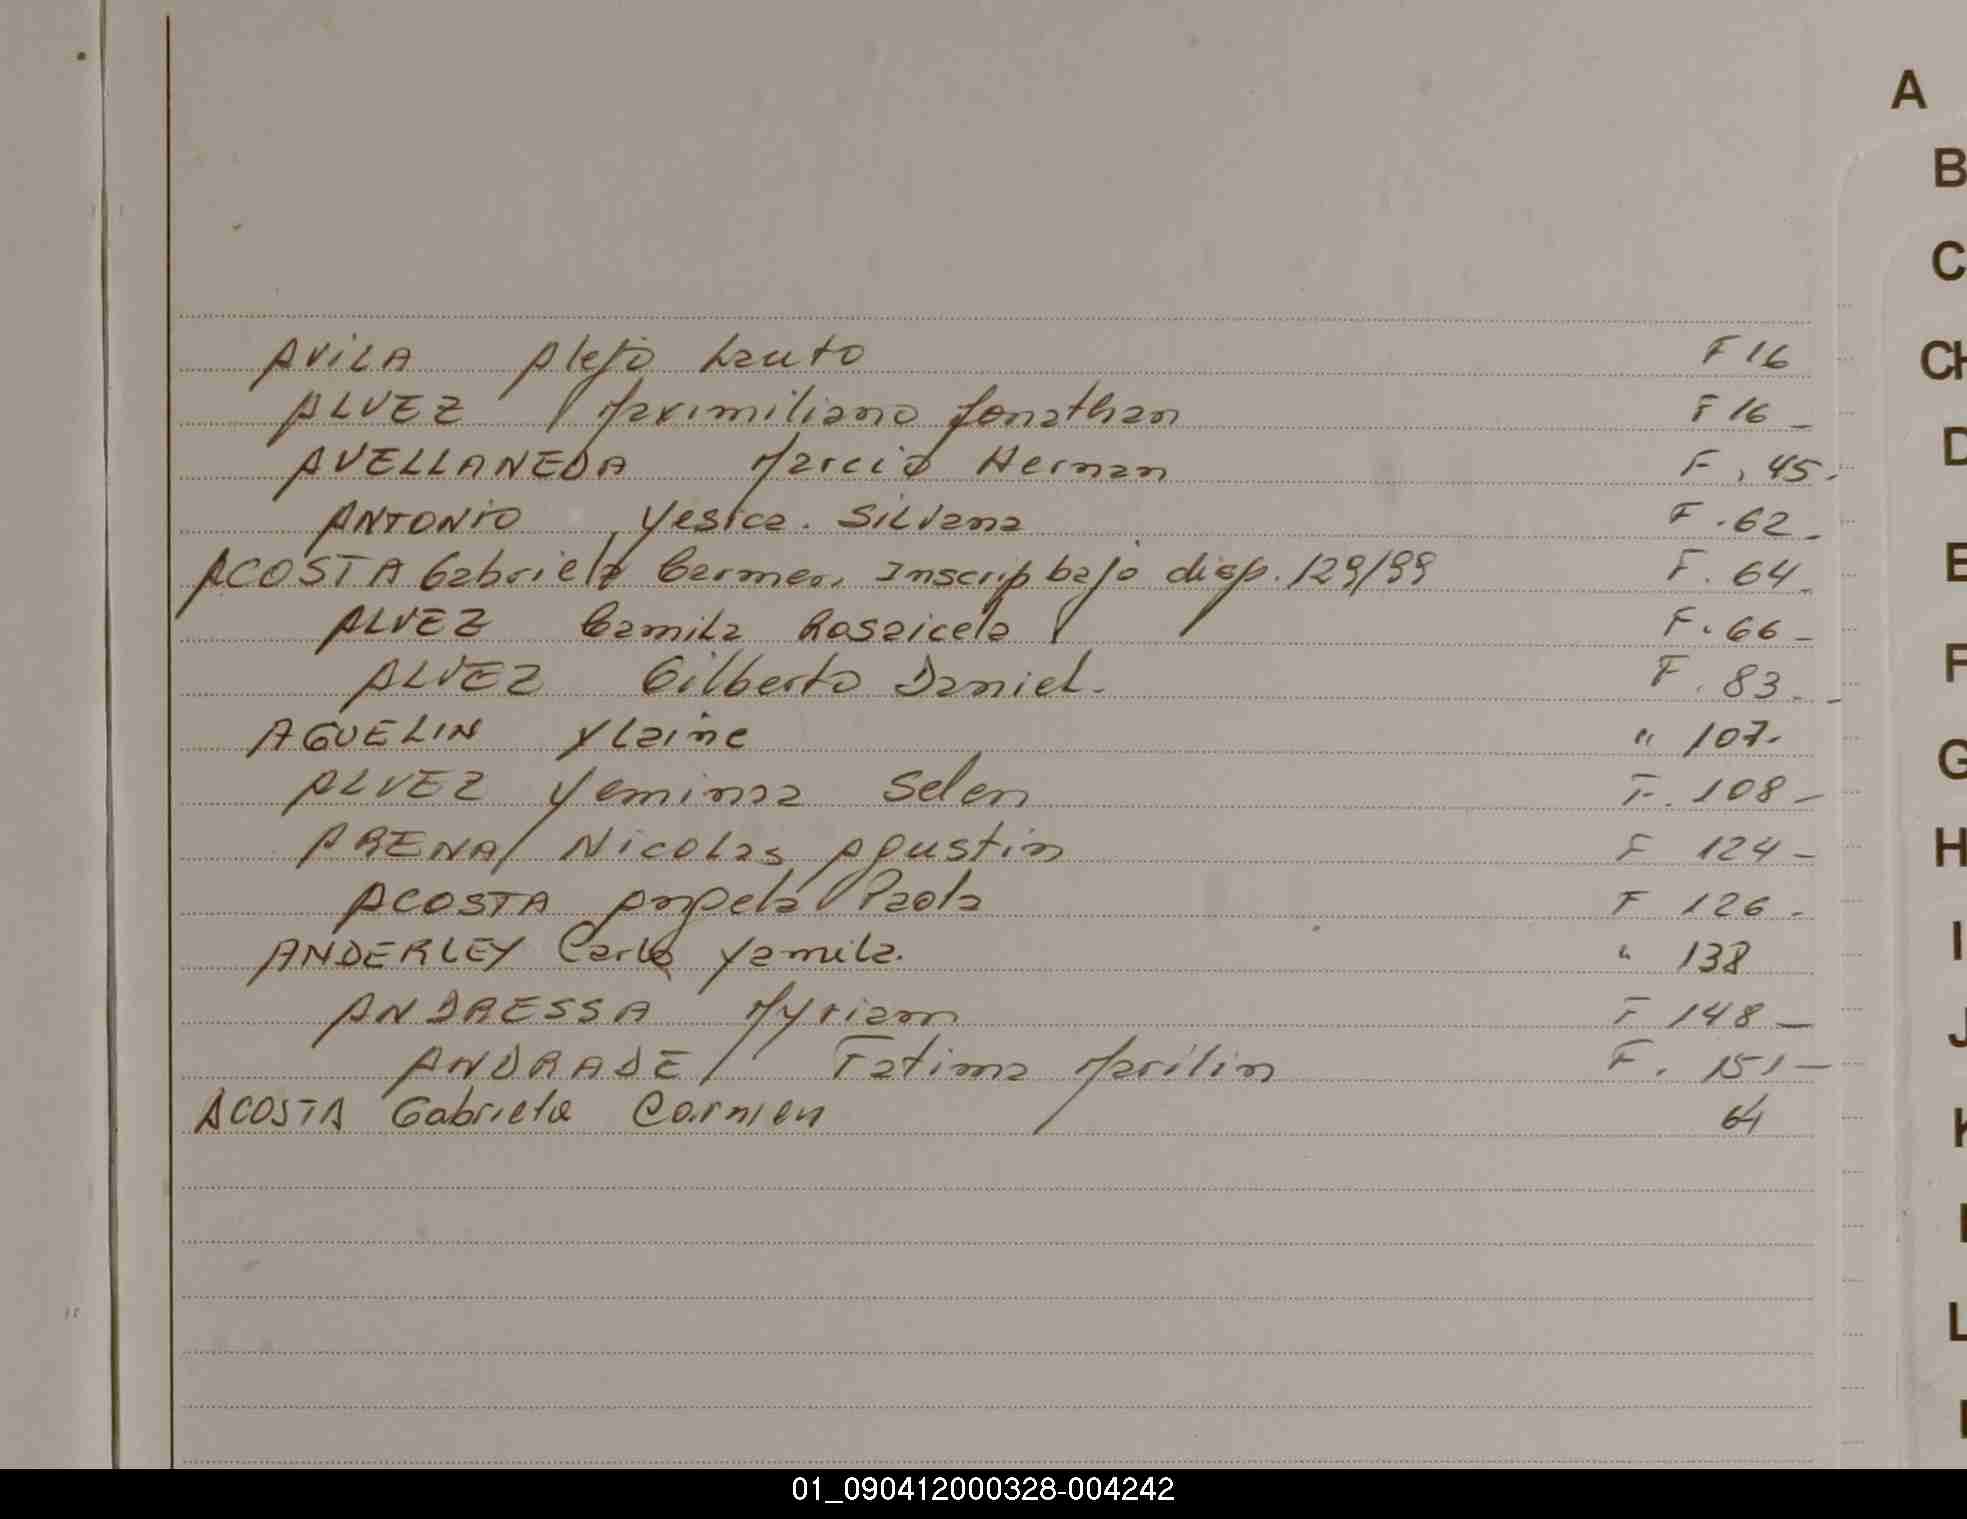 AVILA Alejo Lauto F 16
ALVEZ Maximiliano Jonathan F 16 -
AVELLANEDA Marcio Hernan F. 45-
ANTONIO Yesica. Silvana F. 62 -
ACOSTA Gabriela Carmen. Inscrip bajo disp. 129/99 F. 64 -
ALVEZ Camila Rosaicela F. 66 -
ALVEZ Gilberto Daniel. F. 83 -
AGUELIN Ylaine " 107-
ALVEZ Yemina Selen F. 108 -
ARENA Nicolas Agustin F 124 -
ACOSTA Angela Paola F 126 -
ANDERLEY Carla Yamila. " 138
ANDRESSA Myriam F 148 -
ANDRADE Fatima Marilin F. 151 -
ACOSTA Gabriela Carmen 64
A
B
C
CH
D
E
F
G
H
I
J
K
L
01_090412000328-004242